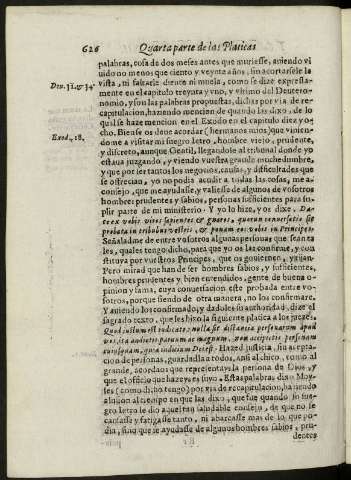 626 Quarta parte de las Platicas
palabras, cosa de dos meses antes que muriesse, aviendo vi
uido no menos que ciento y veynte años, sin acortarsele la
Deu. 31. & 34. vista, ni faltarle diente ni muela, como se dize expressa-
mente en el capitulo treynta y uno, y vltimo del Deutero-
nomio, y son las palabras propuestas, dichas por via de re-
capitulacion, haziendo mencion de quando las dixo, de lo
qual se haze mencion en el Exodo en el capitulo diez y o-
Exod. 18. cho. Bien se os deue acordar (hermanos mios) que vinien-
dome a visitar mi suegro Ietro, hombre viejo, prudente,
y discreto, aunque Gentil, llegandose al tribunal donde yo
estaua juzgando, y viendo vuestra grande muchedumbre,
y que por ser tantos los negocios, causas, y dificultades que
se ofrecian, yo no podia acudir a todas las cosas, me a-
consejo, que me ayudasse, y valiesse de algunos de vosotros
hombres prudentes y sabios, personas suficientes para su-
plir parte de mi ministerio: Y yo lo hize, y os dixe. Da-
te ex vobis viros sapientes & gnaros, quorum conuersatio sit
probata in tribubus vestris, & ponam eos vobis in Principes.
Señaladme de entre vosotros algunas personas que sean ta
les, quales tengo dicho, para que yo os las confirme, y con
stituya por vuestros Principes, que os gouiernen, y rijan.
Pero mirad que han de ser hombres sabios, y suficientes,
hombres prudentes y bien entendidos, gente de buena o-
pinion y fama, cuya conuersacion este probada entre vo-
sotros, porque siendo de otra manera, no los confirmare.
Y auiendo los confirmado, y dadoles su autoridad, dize el
sagrado texto, que les hizo la siguiente platica a los juezes.
Quod iustum est iudicate: nulla sit distantia personarum apud
vos, ita audietis paruum ac magnum, non accipietis personam
cuiusquam, quia iudicium Dei est. Hazed justicia, sin acep-
cion de personas, guardadla a todos, ansi al chico, como al
grande, acordaos que representays la persona de Dios, y
que el oficio que hazeys es suyo. Estas palabras dixo Moy-
ses (como dicho tengo) por via de recapitulacion, haziendo
alusion al tiempo en que las dixo, que fue quando su sue-
gro Ietro le dio aquel tan saludable consejo, de que no se
cansasse y fatigasse tanto, ni abarcasse mas de lo que po-
dia, sino que se ayudasse de algunos hombres sabios, pru-
dentes